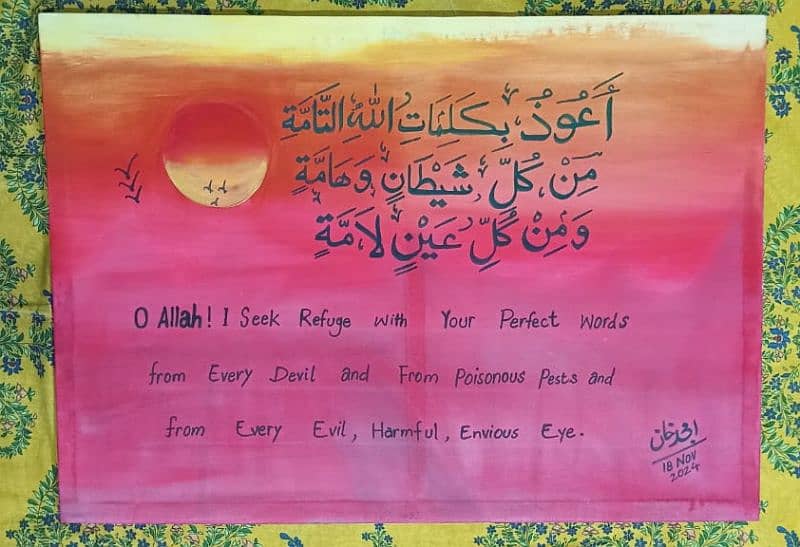 أَعُوذُ بِكَلِمَاتِ اللهِ التَّامَّةِ
مِنْ كُلِّ شَيْطَانٍ وَهَامَّةٍ
وَمِنْ كُلِّ عَيْنٍ لَامَّةٍ
O Allah! I Seek Refuge with Your Perfect Words
from Every Devil and From Poisonous Pests and
from Every Evil, Harmful, Envious Eye.
امجد خان
18 Nov
2024